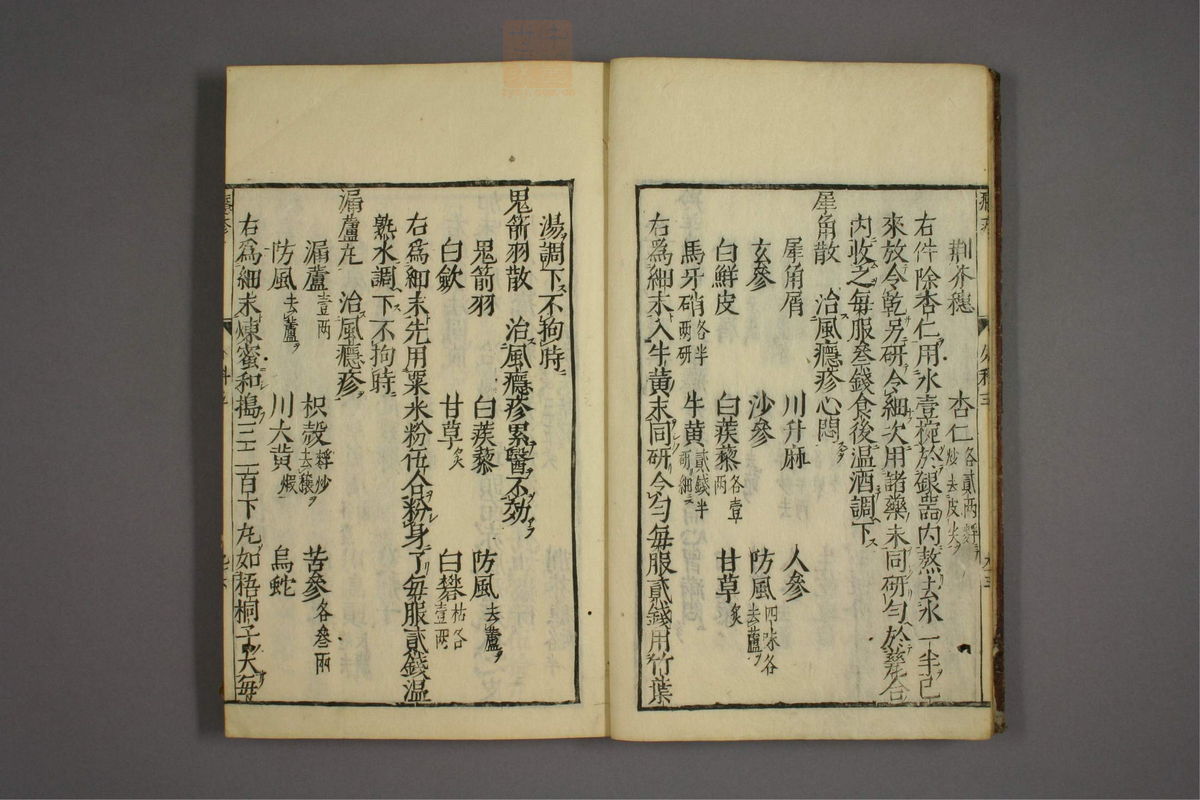 荆芥穗　杏仁各貳兩麩炒去皮尖ヲ
右件除杏仁用水壹椀於銀器内熬去水一半已
來放令乾另研令細次用諸藥末同研勻於藥合
内收之每服叄錢食後温酒調下
犀角散　治風癮疹心悶
犀角屑　川升麻　人參
玄參　沙參　防風四味各去蘆ヲ
白鮮皮　白蒺藜各壹兩　甘草炙
馬牙硝各半兩研　牛黄貳錢半研細
右爲細末入牛黄末同研令勻每服貳錢用竹葉
湯調下不拘時
鬼箭羽散　治風癮疹累醫不効
鬼箭羽　白蒺藜　防風去蘆ヲ
白斂　甘草炙　白礬枯各壹兩
右爲細末先用粟米粉伍合粉身了每服貳錢温
熟水調下不拘時
漏蘆丸　治風癮疹
漏蘆壹兩　枳殼麩炒去穰ヲ　苦參各叄兩
防風去蘆ヲ　川大黄煨　烏蛇
右爲細末煉蜜和搗三二百下丸如梧桐子大每